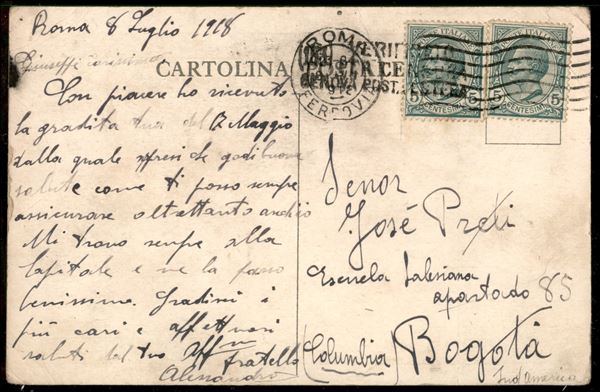 Roma 8 Luglio 1918
Giuseppe carissimo
CARTOLINA
Con piacere ho ricevuto
la gradita tua del 12 Maggio
dalla quale appresi che godi buona
salute come ti posso sempre
assicurare altrettanto anch'io
Mi trovo sempre alla
Capitale e me la passo
benissimo. Gradisci i
più cari e affettuosi
saluti dal tuo aff.mo fratello
Alessandro
ROMA
FERROVIA
POSTE ITALIANE
5 CENTESIMI 5
POSTE ITALIANE
5 CENTESIMI 5
Senor
José Preti
Escuela Salesiana
apartado 85
(Columbia) Bogotá
Sud America